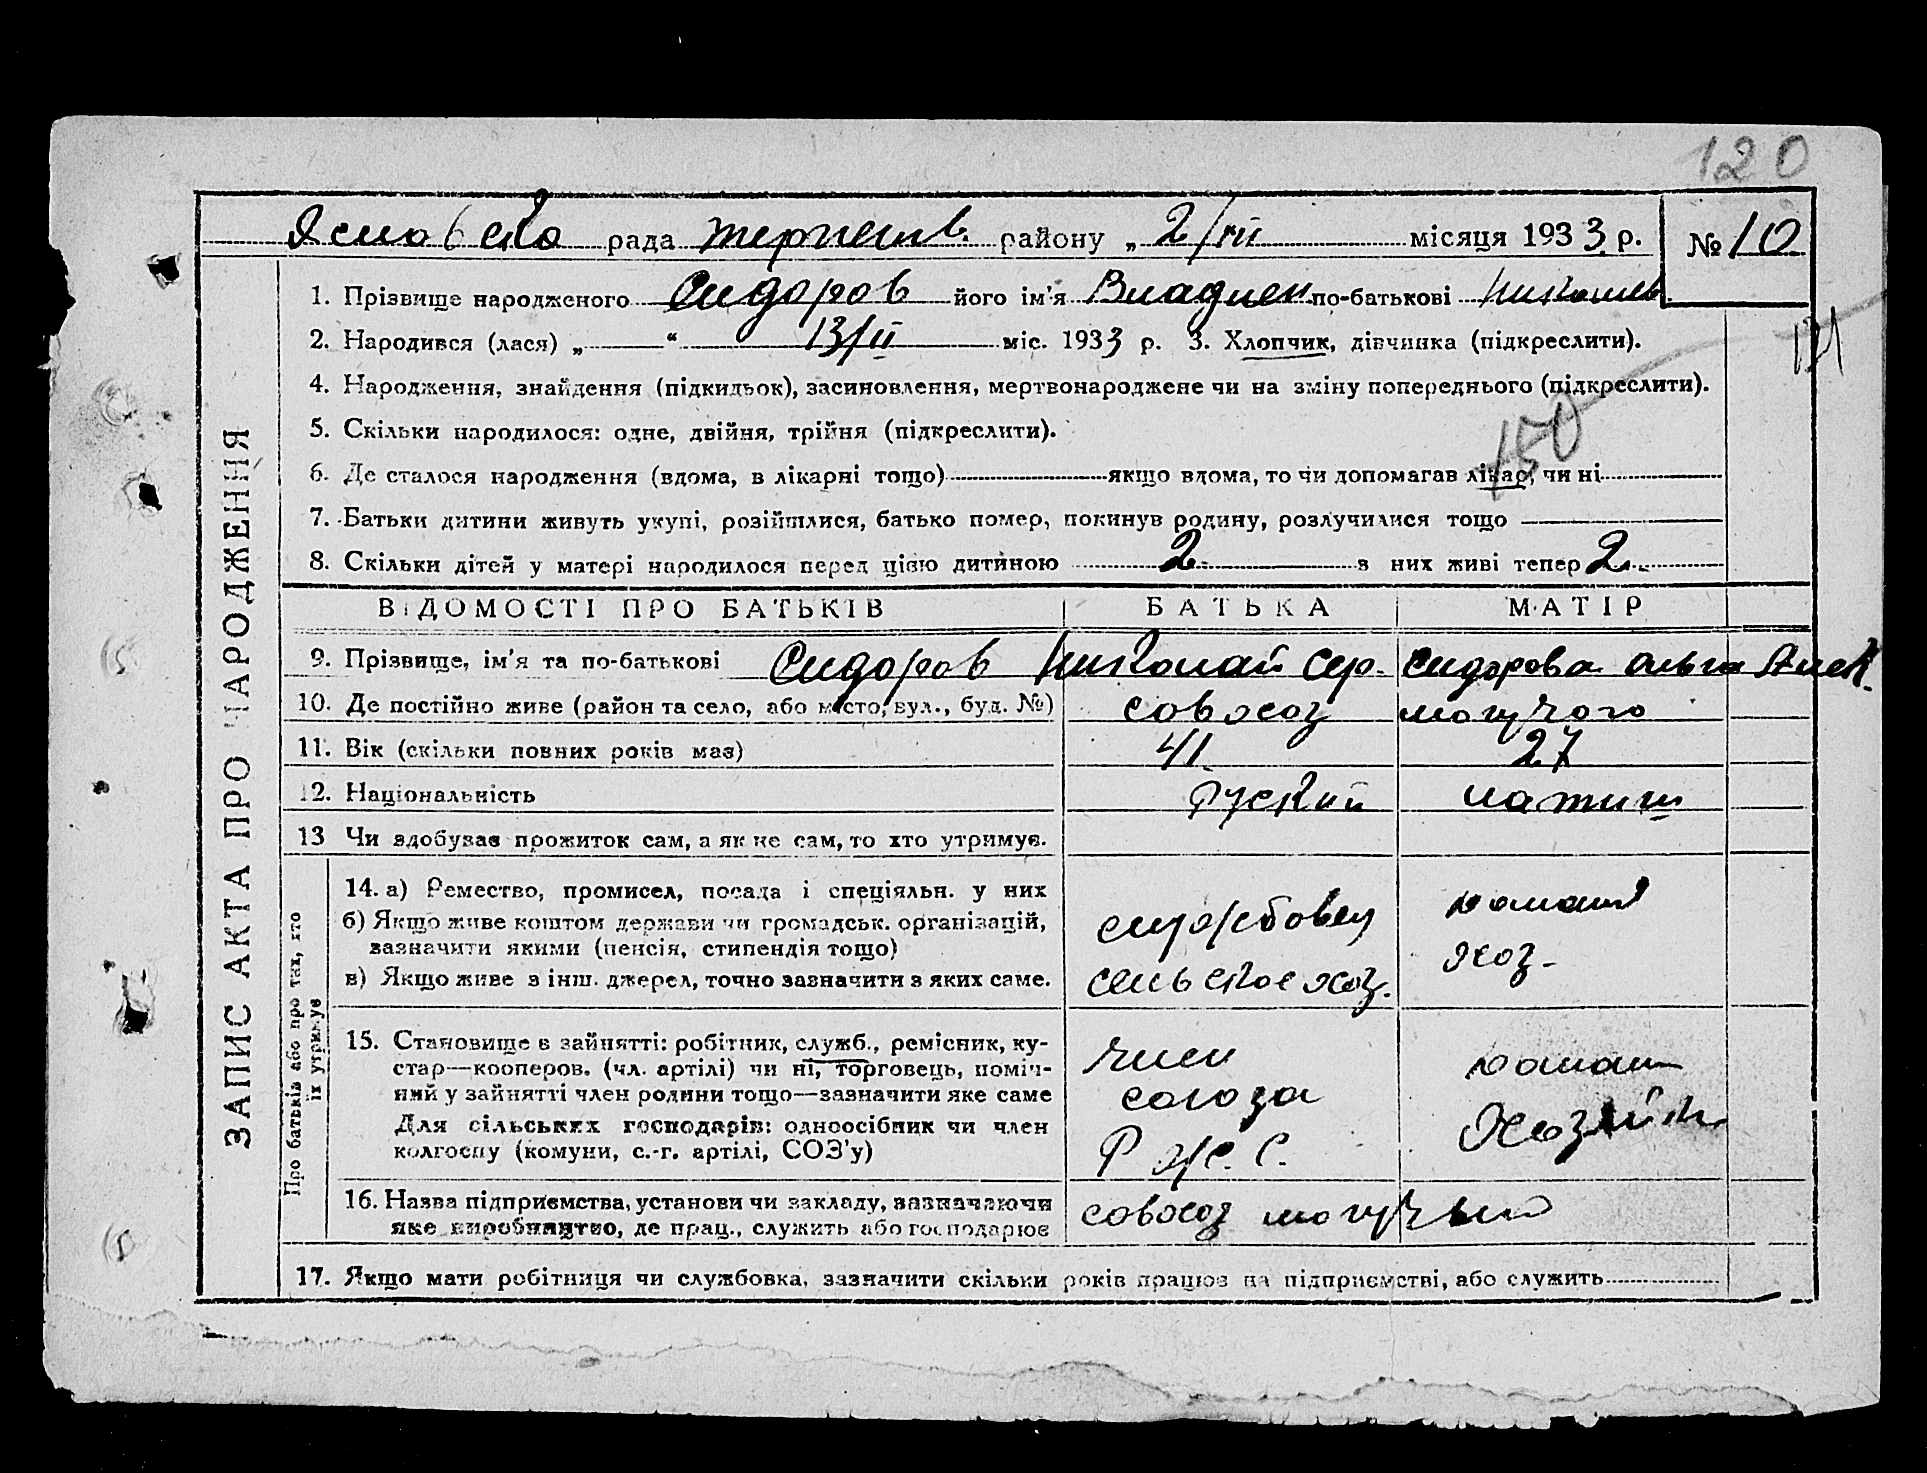 120
рада района району „ 2/III місяця 1933 р. № 10
1. Прізвище народженого Сидоров його ім'я Владлен по-батькові Николаев.
2. Народився (лася) „ “ 13/II міс. 1933 р. 3. Хлопчик, дівчинка (підкреслити).
121
4. Народження, знайдення (підкидьок), засиновлення, мертвонароджене чи на зміну попереднього (підкреслити).
5. Скільки народилося: одне, двійня, трійня (підкреслити).
150
6. Де сталося народження (вдома, в лікарні тощо) якщо вдома, то чи допомагав лікар, чи ні
7. Батьки дитини живуть укупі, розійшлися, батько помер, покинув родину, розлучилися тощо
8. Скільки дітей у матері народилося перед цією дитиною 2 з них живі тепер 2
ВІДОМОСТІ ПРО БАТЬКІВ БАТЬКА МАТІР
9. Прізвище, ім'я та по-батькові Сидоров Николай Сер. Сидорова Ольга Алек.
10. Де постійно живе (район та село, або місто, вул., буд. №) совхоз могучого
11. Вік (скільки повних років має) 41 27
12. Національність руский латиш
13 Чи здобуває прожиток сам, а як не сам, то хто утримує.
ЗАПИС АКТА ПРО НАРОДЖЕННЯ
Про батьків або про тих, хто їх утримує
14. а) Ремество, промисел, посада і спеціяльн. у них
б) Якщо живе коштом держави чи громадськ. організацій,
зазначити якими (пенсія, стипендія тощо)
в) Якщо живе з інш. джерел, точно зазначити з яких саме.
службовец
сельское хоз.
домаш
хоз.
15. Становище в зайнятті: робітник, служб., ремісник, ку-
стар—кооперов. (чл. артілі) чи ні, торговець, поміч-
ний у зайнятті член родини тощо—зазначити яке саме
Для сільських господарів: одноосібник чи член
колгоспу (комуни, с.-г. артілі, СОЗ'у)
член
союза
домаш
хозяйка
16. Назва підприємства, установи чи закладу, зазначаючи
яке виробництво, де прац., служить або господарює
совхоз могучый
17. Якщо мати робітниця чи службовка, зазначити скільки років працює на підприємстві, або служить